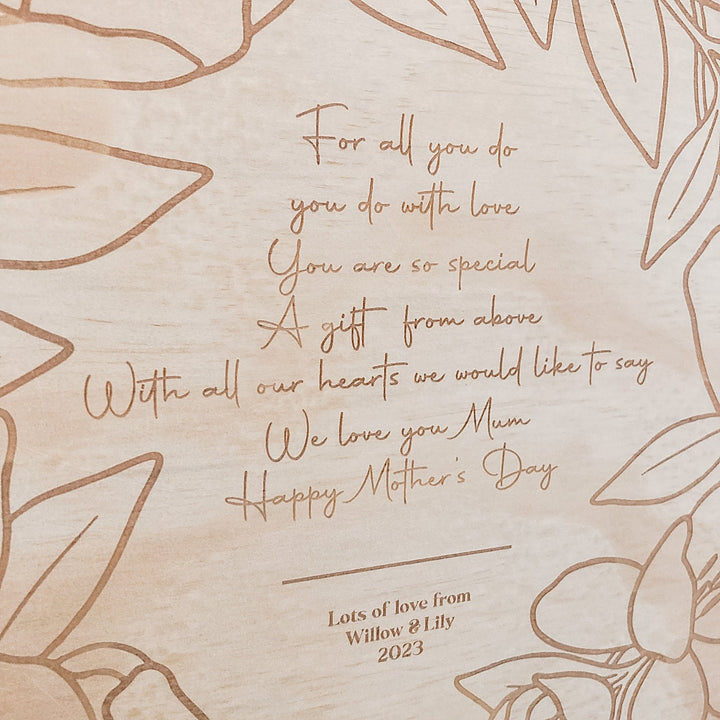 For all you do
you do with love
You are so special
A gift from above
With all our hearts we would like to say
We love you Mum
Happy Mother's Day
Lots of love from
Willow & Lily
2023